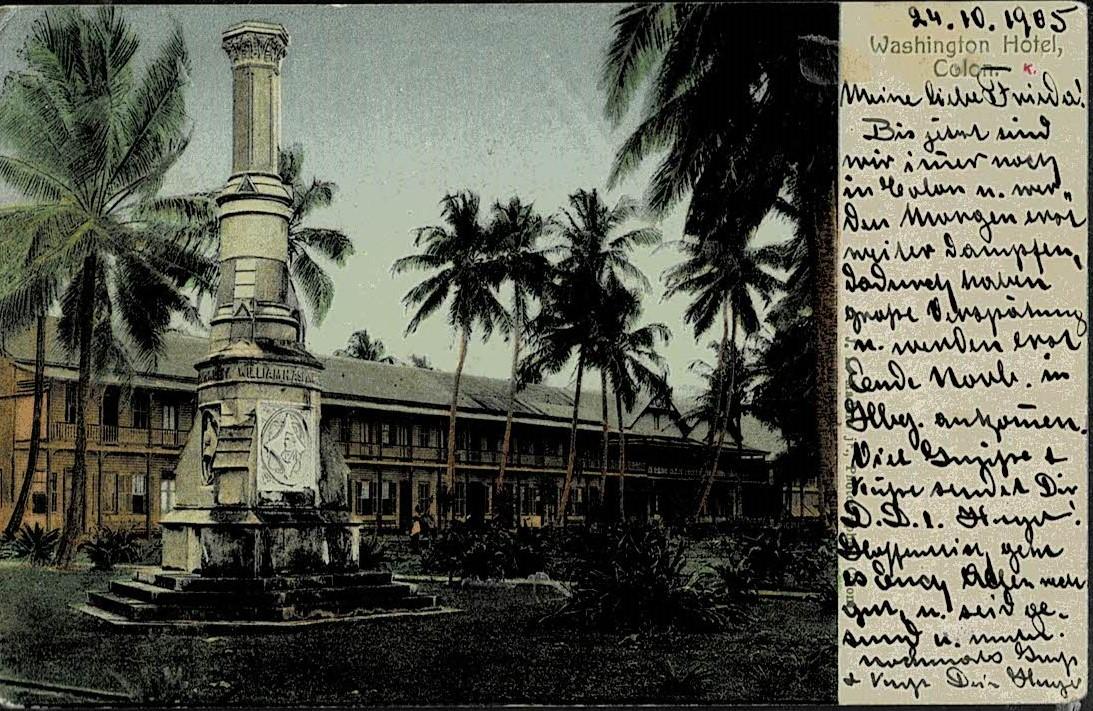 24.10.1905
Washington Hotel,
Colon.
K.
Meine liebe Frieda!
Bis jetzt sind
wir im̄er noch
in Colon u. wer„
den Morgen erst
weiter dampfen,
dadurch haben
große Verspätung
u. werden erst
Ende Novb. in
Hbg. ankom̄en.
Viel Grüße &
Küße sendet Dir
D. D. l. Hugo!
Hoffentlich geht
es Euch Allen recht
gut, u. seid ge-
sund u. munter.
nochmals Gruß
& Kuß Dein Hugo
WILLIAM H. ASPINWALL